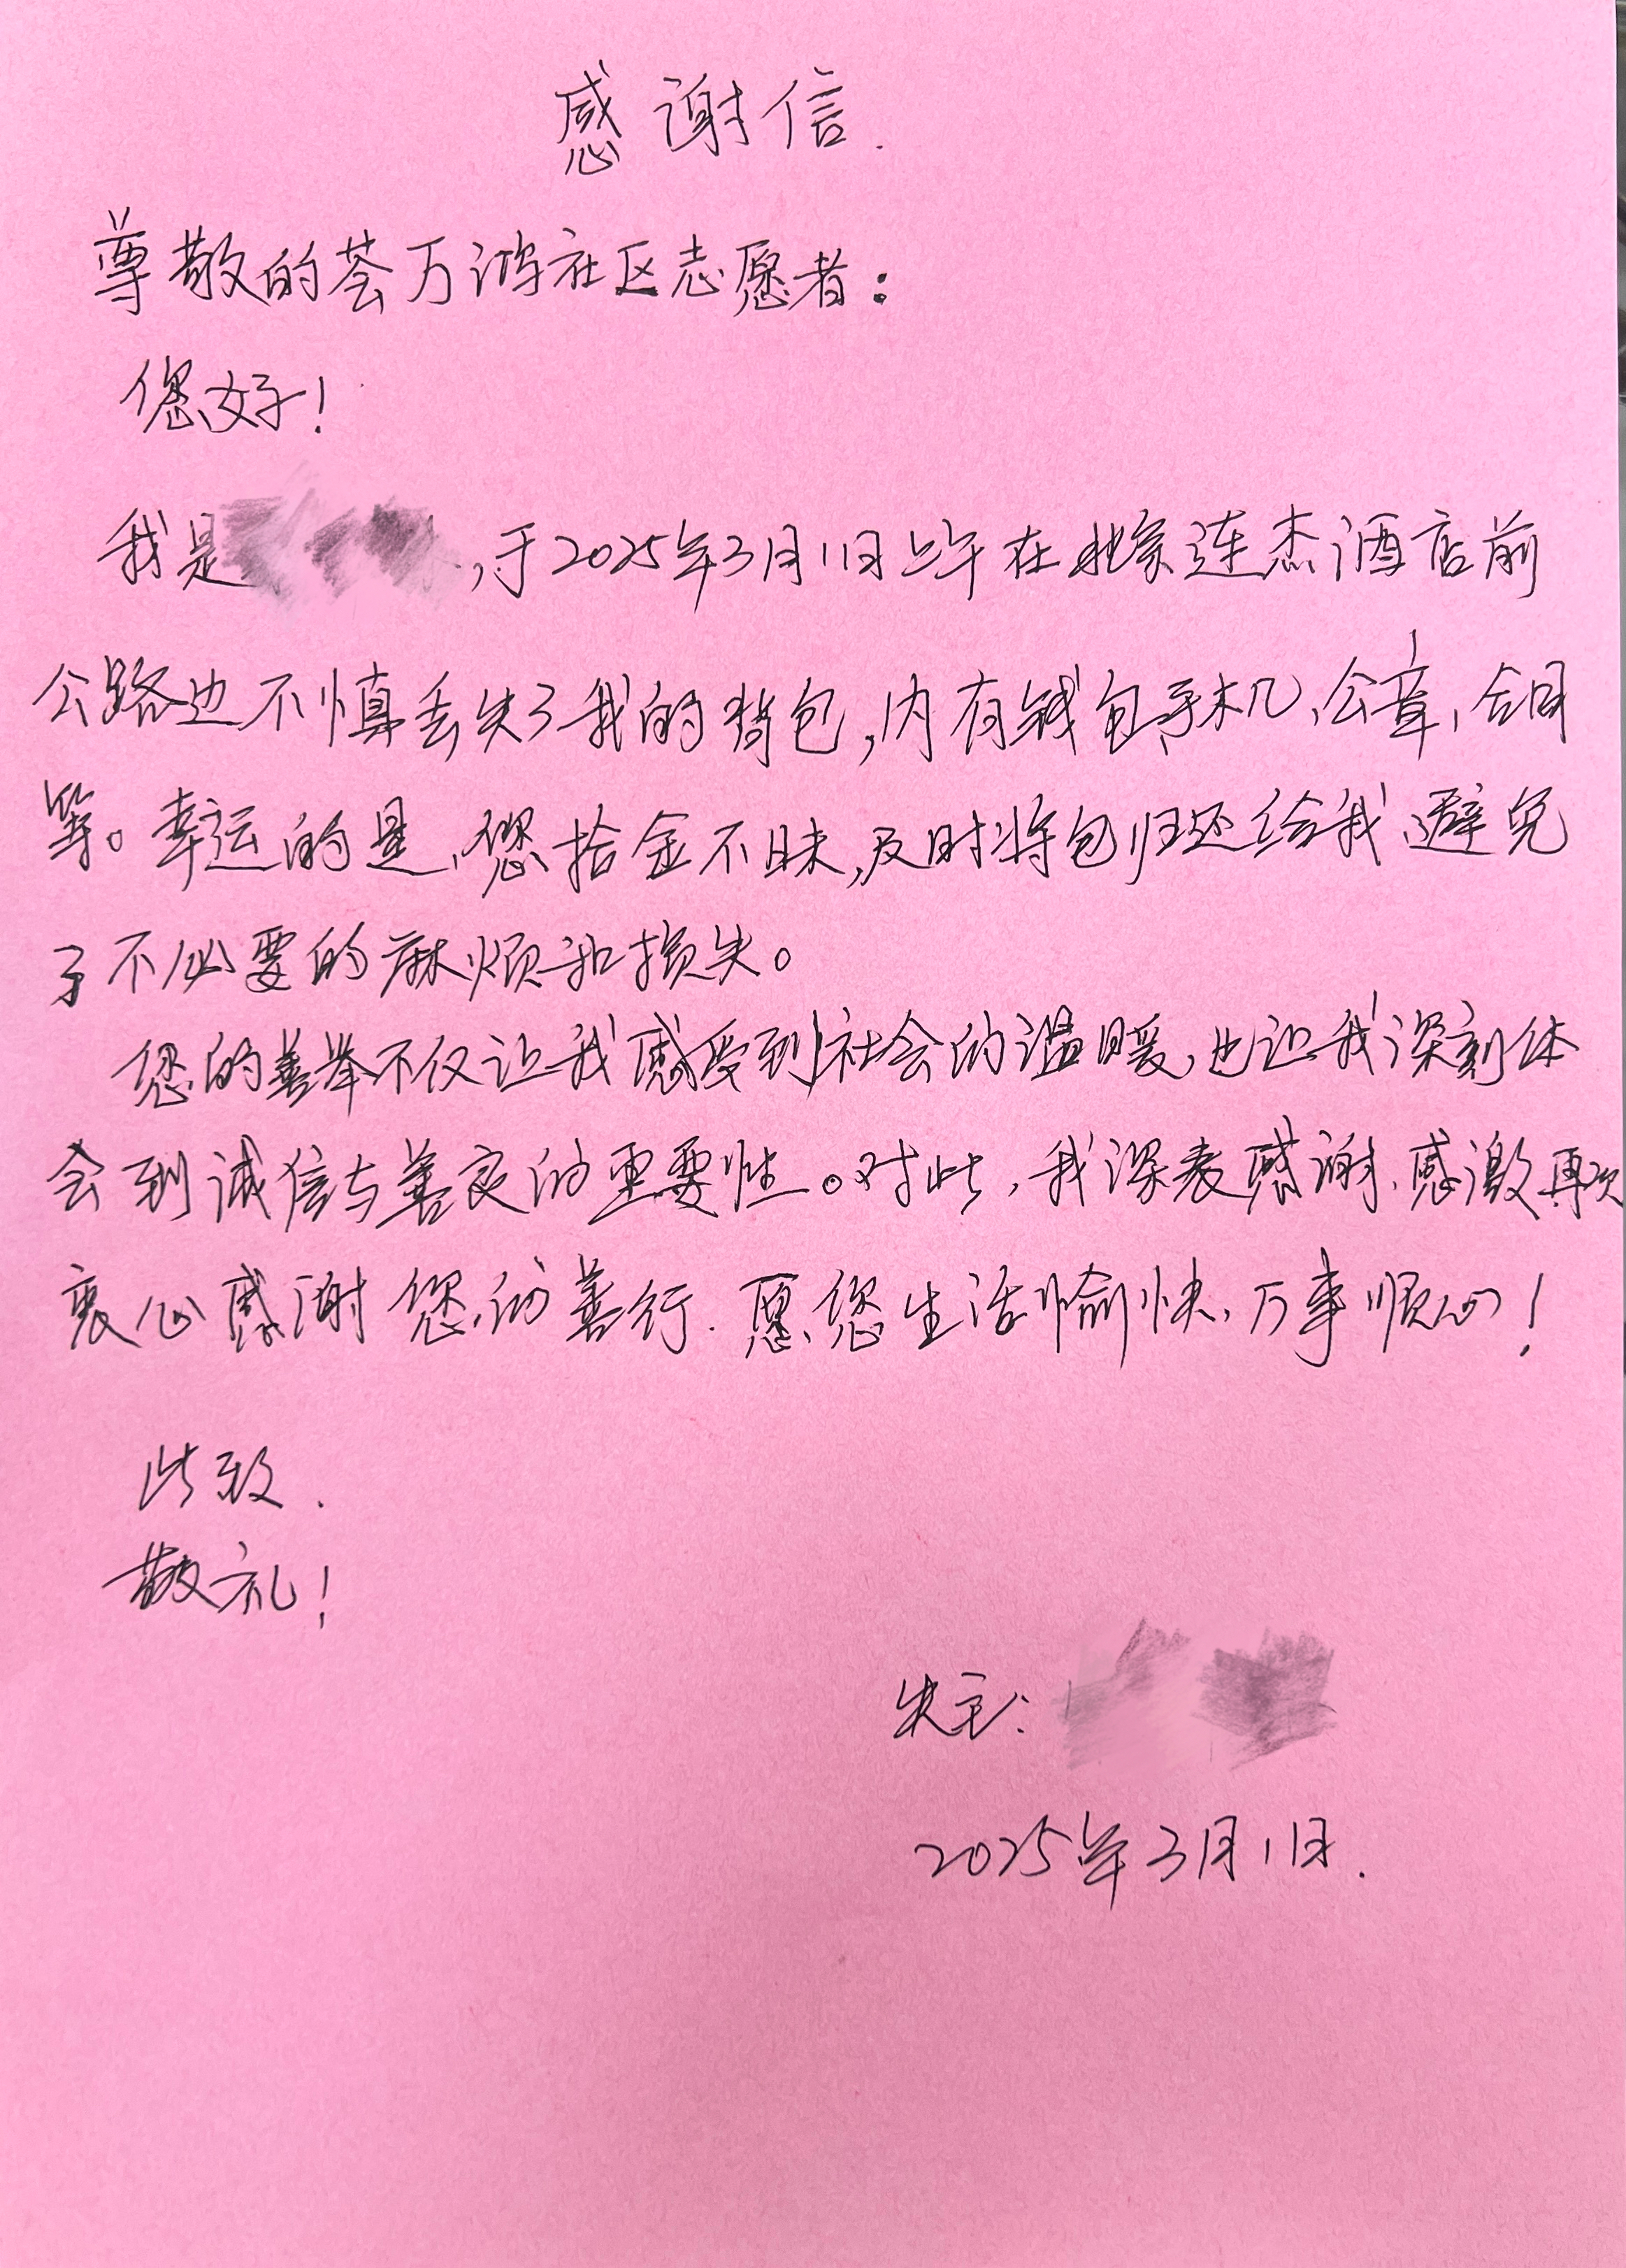 感谢信.
尊敬的荟万鸿社区志愿者:
您好!
我是 ,于2025年3月1日上午在北京连杰酒店前
公路边不慎丢失了我的背包,内有钱包、手机、公章、合同
等。幸运的是、您拾金不昧,及时将包归还给我、避免
了不必要的麻烦和损失。
您的善举不仅让我感受到社会的温暖、也让我深刻体
会到诚信与善良的重要性。对此,我深表感谢、感激再次
衷心感谢您的善行.愿您生活愉快、万事顺心!
此致.
敬礼!
失主:
2025年3月1日.